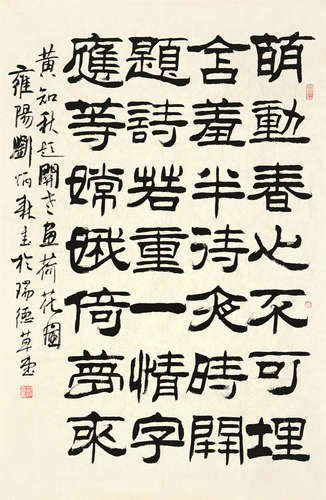 萌動春心不可埋
含羞半待夜時開
題詩若重一情字
應等嫦娥倚夢來
黃知秋題開老畫荷花圖
雍陽劉炳森書於瑞德草堂